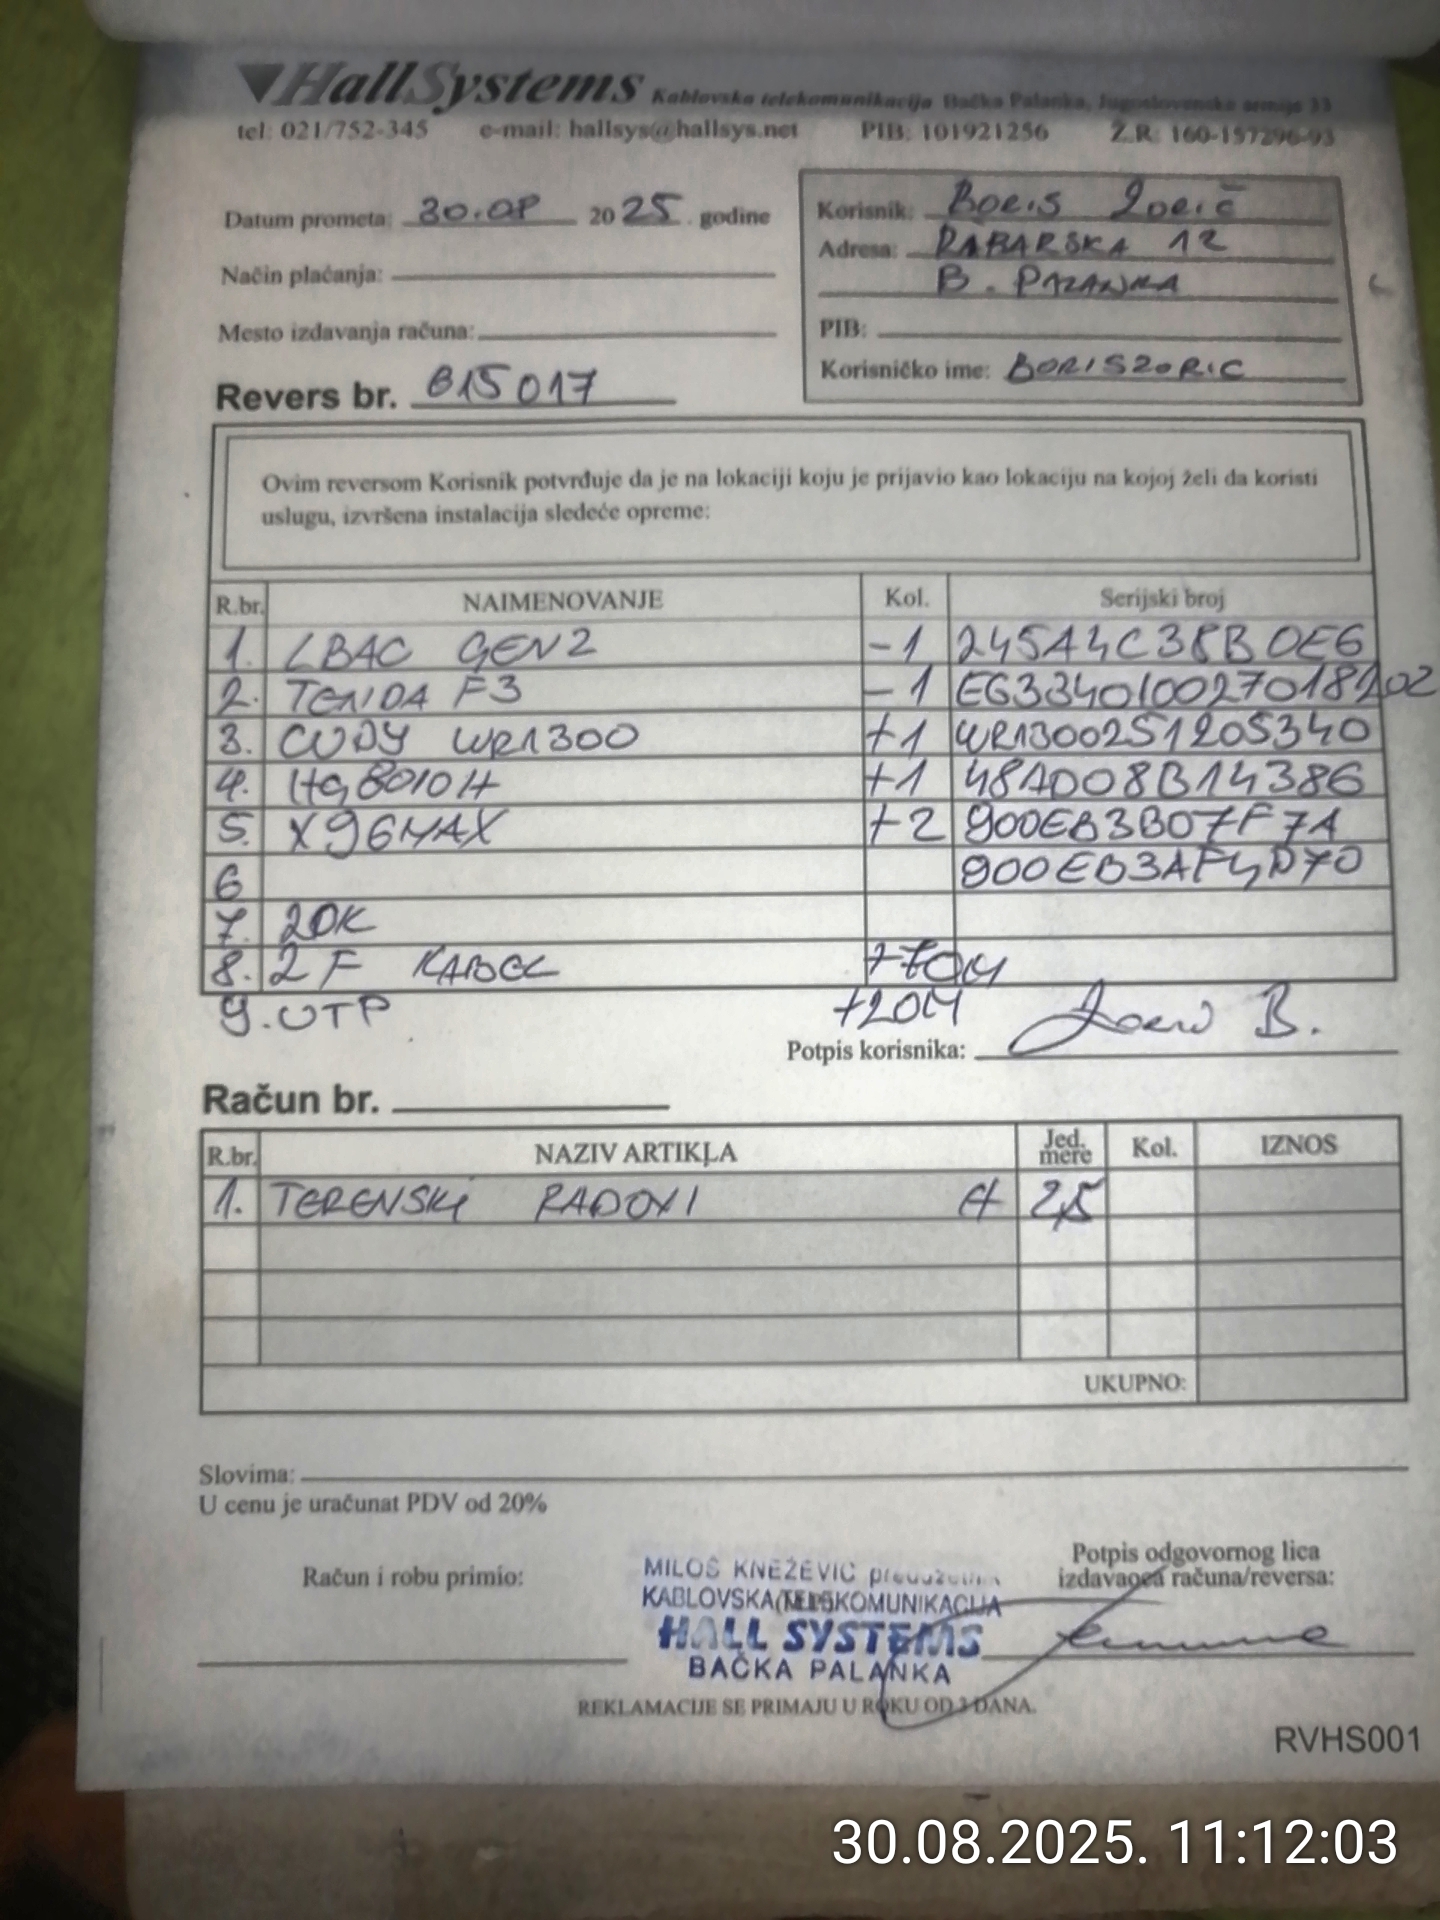 HallSystems Kablovska telekomunikacija Bačka Palanka, Jugoslovenske armije 33
tel: 021/752-345 e-mail: hallsys@hallsys.net PIB: 101921256 Ž.R: 160-157296-93
Datum prometa: 30.08 2025. godine
Način plaćanja:
Mesto izdavanja računa:
Revers br. 615017
Korisnik: BORIS ZORIĆ
Adresa: RABARSKA 12
B. PALANKA
PIB:
Korisničko ime: BORISZORIC
Ovim reversom Korisnik potvrđuje da je na lokaciji koju je prijavio kao lokaciju na kojoj želi da koristi
uslugu, izvršena instalacija sledeće opreme:
R.br. NAIMENOVANJE Kol. Serijski broj
1. LBAC GEN2 -1 245A4C38B0E6
2. TENDA F3 -1 E6334010027018202
3. CUDY WR1300 +1 WR1300251205340
4. HG8010H +1 48AD08B14386
5. X96MAX +2 900EB3B07F7A
6 900EB3AF4D70
7. 2OK
8. 2F KABEL +70M
9. UTP +20M
Potpis korisnika: B.
Račun br.
R.br. NAZIV ARTIKLA Jed. mere Kol. IZNOS
1. TERENSKI RADOVI H 2,5
UKUPNO:
Slovima:
U cenu je uračunat PDV od 20%
Račun i robu primio:
MILOŠ KNEŽEVIĆ preduzetnik
KABLOVSKA TELEKOMUNIKACIJA
HALL SYSTEMS
BAČKA PALANKA
Potpis odgovornog lica
izdavaoca računa/reversa:
REKLAMACIJE SE PRIMAJU U ROKU OD 3 DANA.
RVHS001
30.08.2025. 11:12:03